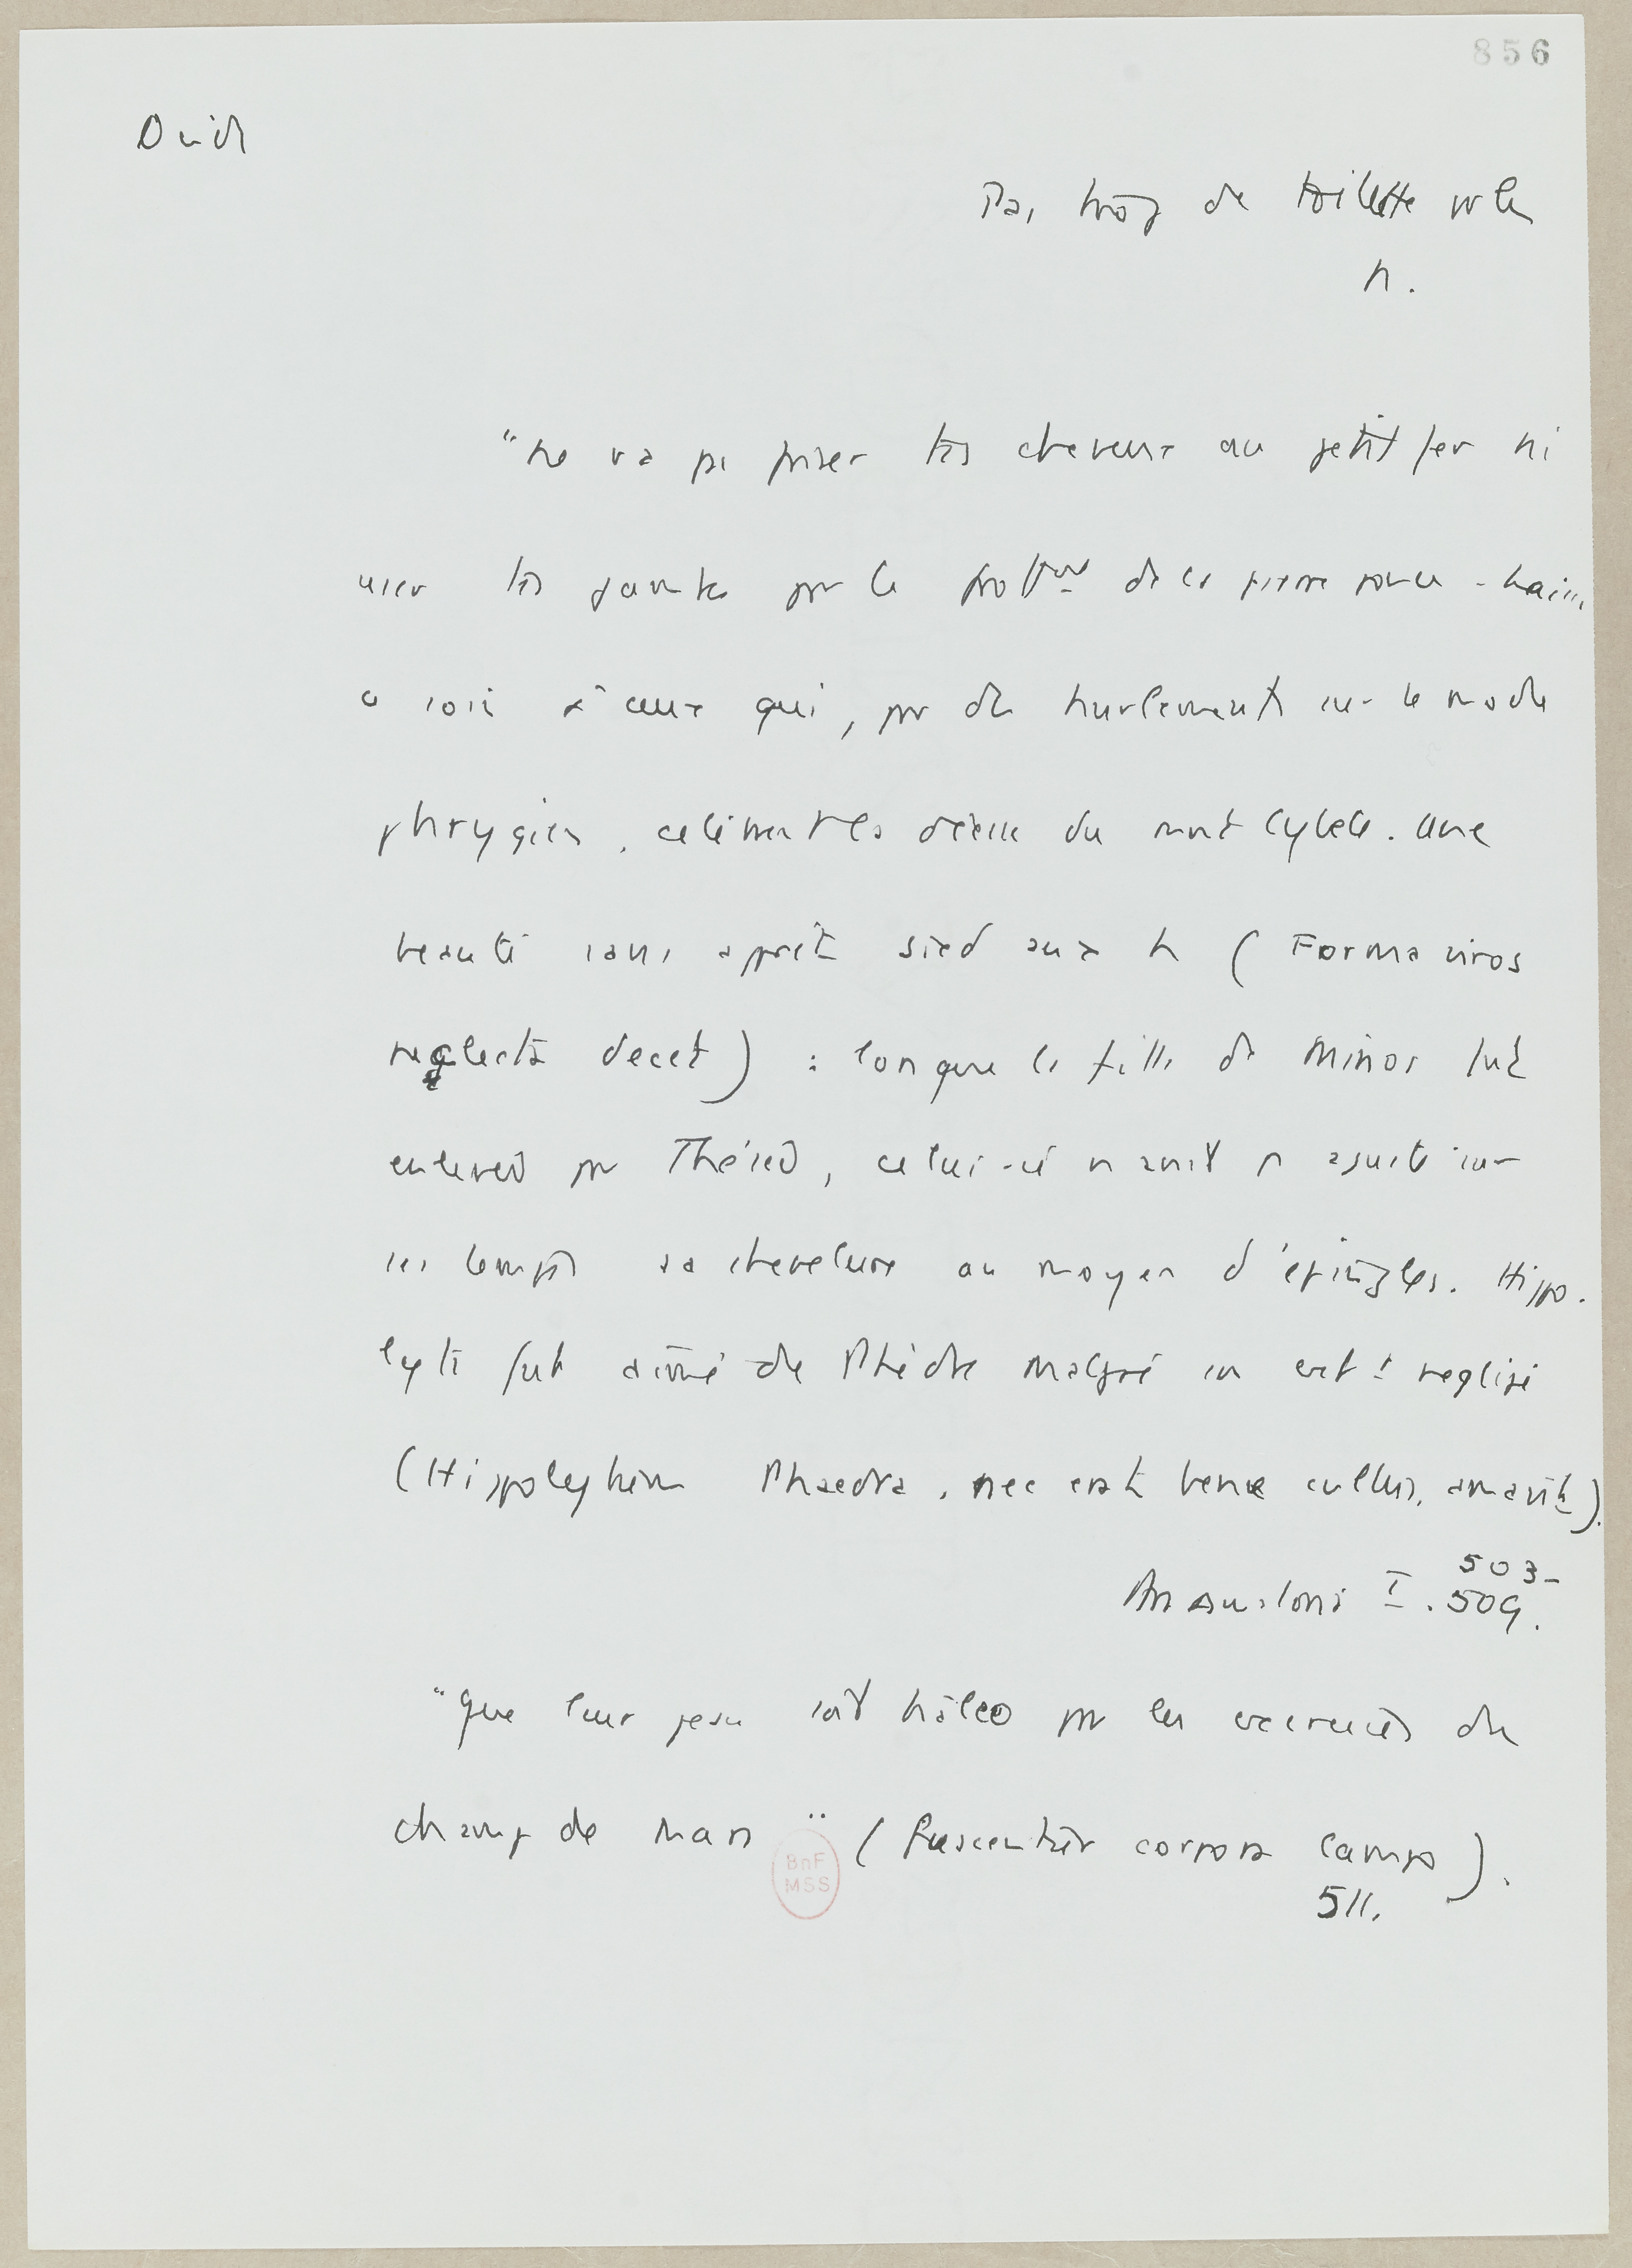 856
Ovide
Pas trop de toilette pr les
h.
"ne va pas friser tes cheveux au petit fer ni
user tes jambes par le frottemt de la pierre ponce. Laisse
ce soin à ceux qui, par des hurlements sur le mode
phrygien, célèbrent la déesse du mont Cybèle. Une
beauté sans apprêt sied aux h (Forma viros
neglecta decet) : lorsque la fille de Minos fut
enlevée par Thésée, celui-ci n'avait pas ajusté sur
ses tempes sa chevelure au moyen d'épingles. Hippo-
lyte fut aimé de Phèdre malgré son ext.r négligé
(Hippolytum Phaedra, nec erat bene cultus, amavit).
Art d'aimer I. 503-
509.
"Que leur peau soit hâlée par les exercices du
champ de Mars" (fuscentur corpora campo).
511.
BnF
MSS